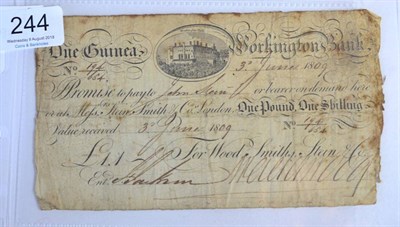 244
Wednesday 8 August 2018
Coins & Banknotes
One Guinea. Workington Bank.
No. 3d June 1809
I Promise to pay to or bearer on demand here
or at Messrs Smith & Co London One Pound, One Shilling
Value received 3d June 1809 No.
£1.1 For Wood, Smiths, Stein & Co
Entd